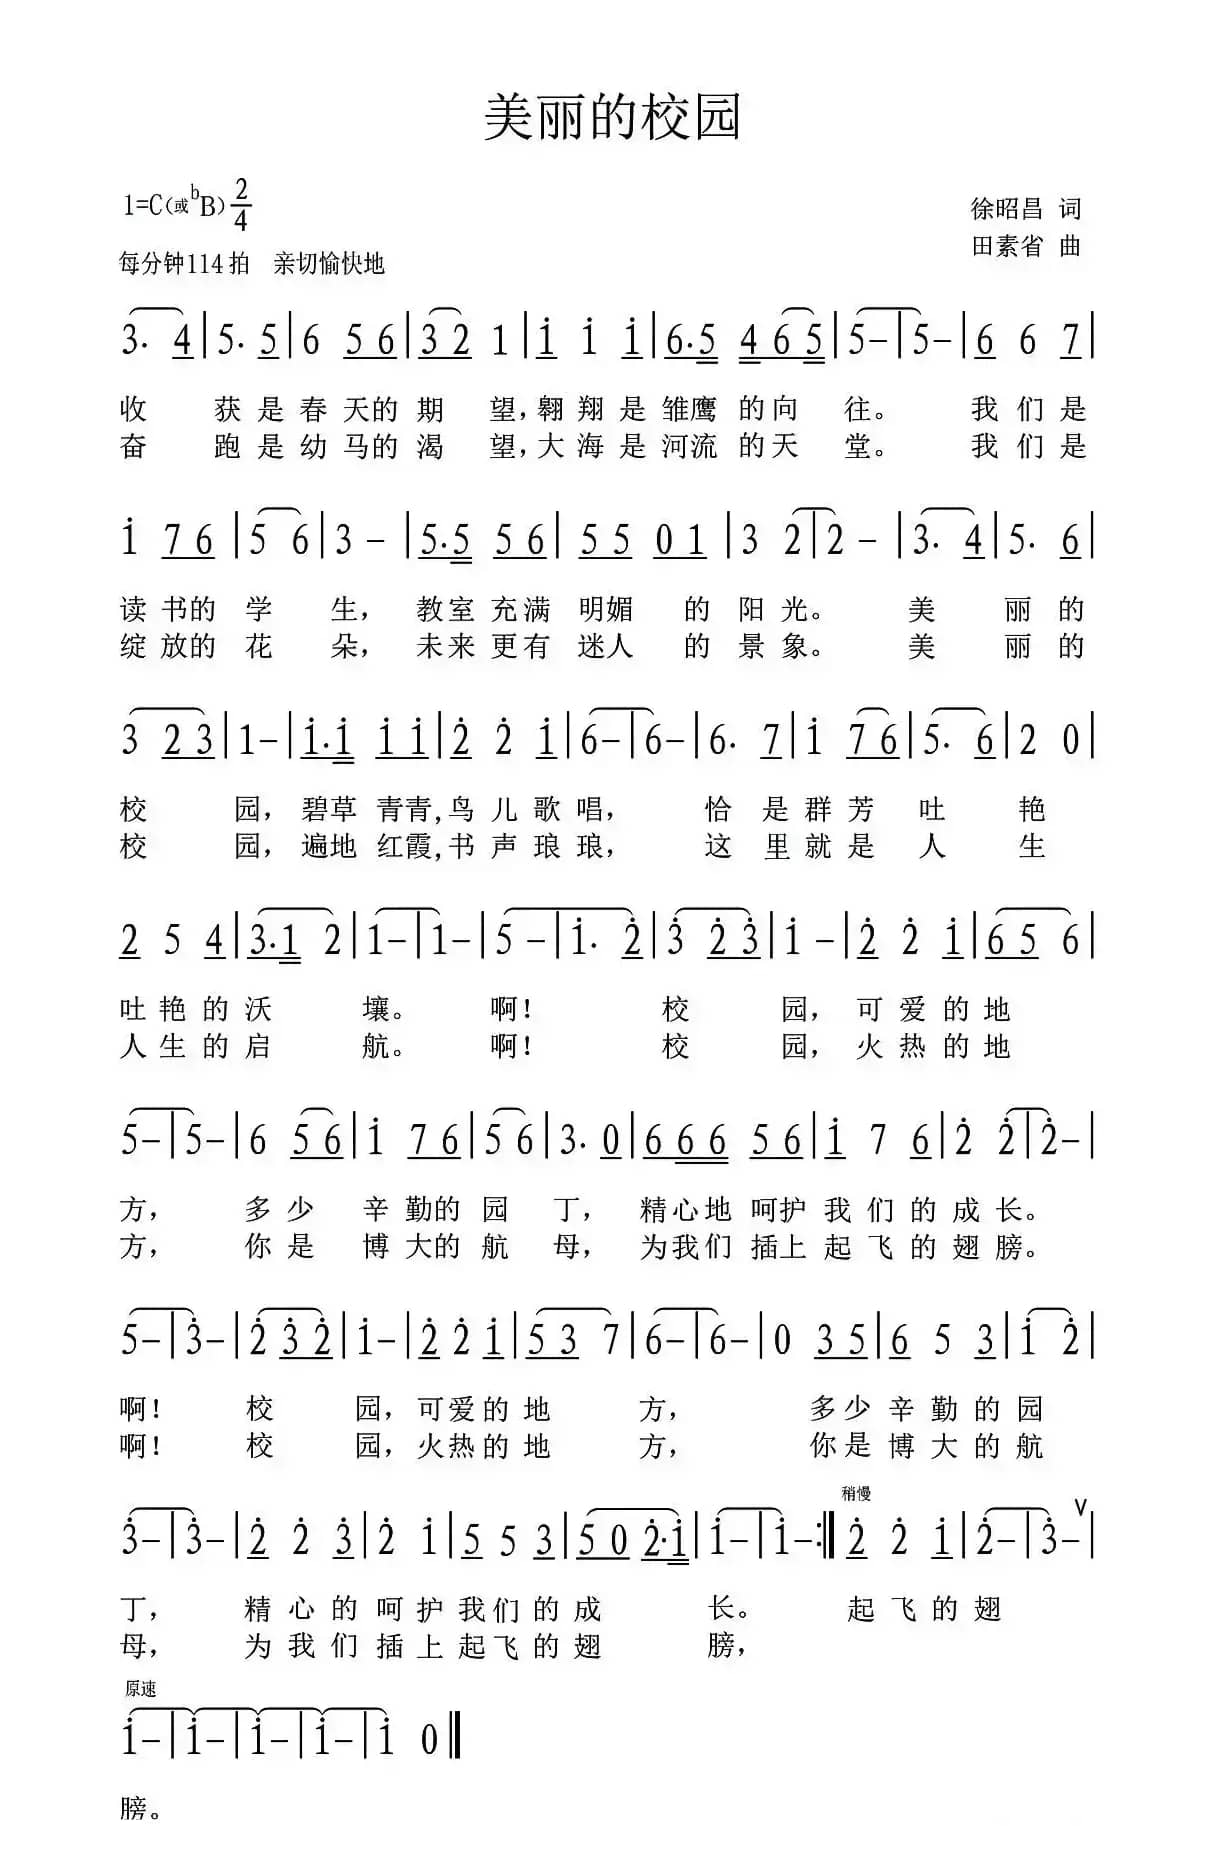 美丽的校园
1=C(或bB) 2/4
徐昭昌 词
每分钟114拍 亲切愉快地
田素省 曲
3. 4|5. 5|6 5 6|3 2 1|i i i|6.5 4 6 5|5-|5-|6 6 7|
收 获是春天的期 望,翱翔是雏鹰的向 往。 我们是
奋 跑是幼马的渴 望,大海是河流的天 堂。 我们是
i 7 6|5 6|3 -|5.5 5 6|5 5 0 1|3 2|2 -|3. 4|5. 6|
读书的学 生, 教室充满 明媚 的阳光。 美 丽的
绽放的花 朵, 未来更有 迷人 的景象。 美 丽的
3 2 3|1-|i.i i i|2̇ 2̇ i|6-|6-|6. 7|i 7 6|5. 6|2 0|
校 园, 碧草 青青,鸟儿歌唱, 恰 是群芳吐 艳
校 园, 遍地 红霞,书声琅琅, 这 里就是人 生
2 5 4|3.1 2|1-|1-|5 -|i. 2̇|3̇ 2̇ 3̇|i -|2̇ 2̇ i|6 5 6|
吐艳的沃 壤。 啊! 校 园, 可爱的地
人生的启 航。 啊! 校 园, 火热的地
5-|5-|6 5 6|i 7 6|5 6|3. 0|6 6 6 5 6|i 7 6|2̇ 2̇|2̇-|
方, 多少 辛勤的园 丁, 精心地呵护我们的成长。
方, 你是 博大的航 母, 为我们插上起飞的翅膀。
5-|3̇-|2̇ 3̇ 2̇|i-|2̇ 2̇ i|5 3 7|6-|6-|0 3 5|6 5 3|i 2̇|
啊! 校 园,可爱的地 方, 多少辛勤的园
啊! 校 园,火热的地 方, 你是博大的航
稍慢
3̇-|3̇-|2̇ 2̇ 3̇|2̇ i|5 5 3|5 0 2̇.i|i-|i-:‖2̇ 2̇ i|2̇-|3̇-∨|
丁, 精心的呵护我们的成 长。 起飞的翅
母, 为我们插上起飞的翅 膀,
原速
i-|i-|i-|i-|i 0‖
膀。